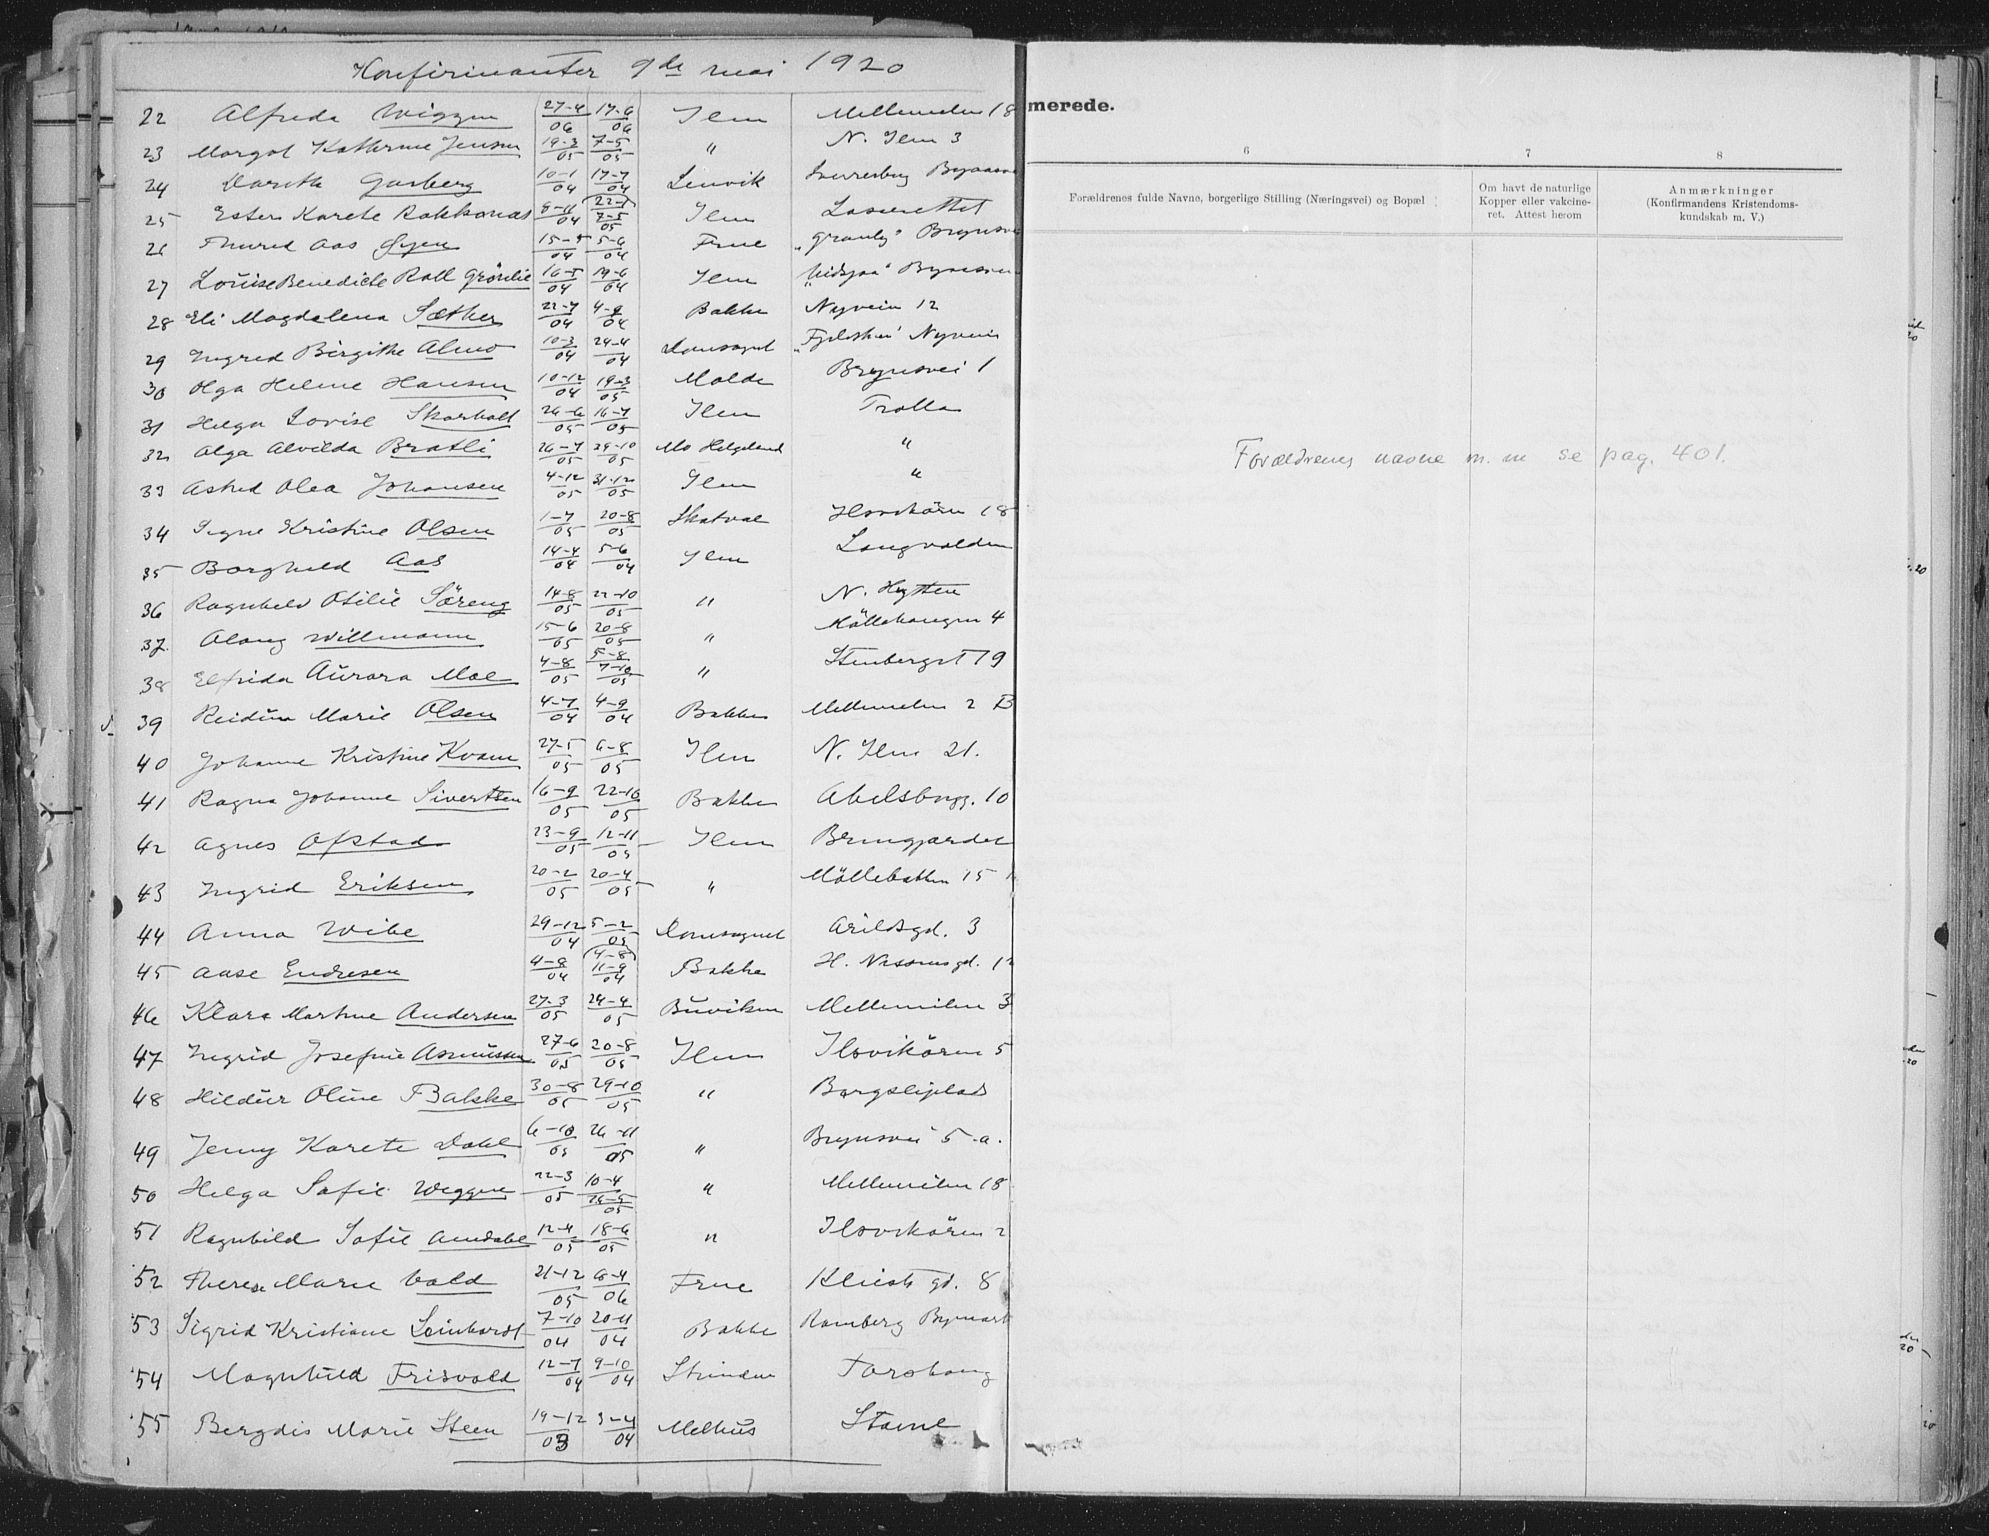 Konfirmanter 9de mai 1920
22 Alfreda Wiggen 27-4/06 17-6/06 Ilen Mellemilen 18
23 Margot Kathrine Jensen 19-3/05 7-5/05 " N. Ilen 3
24 Dorothe Garberg 10-1/04 17-7/04 Lenvik
25 Ester Karete 8-11/04 (22-1) 7-5/05 Ilen Lasarettet
26 Thurid Aas Øyen 15-5/04 5-6/04 Frue "Granly"
27 Louise Benedicte Roll Grönlie 16-5/04 19-6/04 Ilen
28 Eli Magdalena Sæther 22-7/04 4-9/04 Bakke Nyveien 12
29 Ingrid Birgithe Almo 10-3/04 24-4/04 Domsognet Nyveien
30 Olga Helene Hansen 10-12/04 19-3/05 Molde Brynsvei 1
31 Helga Lovise Skarholt 26-6/05 16-7/05 Ilen Trolla
32 Olga Alvilda Bratli 26-7/05 29-10/05 Mo Helgeland "
33 Astrid Olea Johansen 4-12/05 31-12/05 Ilen "
34 Signe Kristine Olsen 1-7/05 20-8/05 Skatval Ilsvikören 18
35 Borghild Aas 14-4/04 5-6/04 Ilen Langvolden
36 Ragnhild Otilie Söreng 14-8/05 22-10/05 " N. Hytten
37. Olaug Willmann 15-6/05 20-8/05 " Möllehaugen 4
38 Elfrida Aurora Moe 4-8/05 5-8 7-10/05 " Stenbergst 19
39 Reidun Marie Olsen 4-7/04 4-9/04 Bakke Mellemilen 2 B
40 Johanne Kristine Kvam 27-5/05 6-8/05 Ilen N. Ilen 21.
41 Ragna Johanne Sivertsen 16-9/05 22-10/05 Bakke Abelsbygg. 10
42 Agnes Ofstad 23-9/05 12-11/05 Ilen
43 Ingrid Eriksen 20-2/05 20-4/05 " Möllebakken 15
44 Anna Wibe 29-12/04 5-2/05 Domsognet Arildsgd. 3
45 Aase Endresen 4-8/04 (4-8) 11-9/04 Bakke
46 Klara Martine Andersen 27-3/05 24-4/05 Buviken Mellemilen 3
47 Ingrid Josefine Asmussen 27-6/05 20-8/05 Ilen Ilsvikören 5
48 Hildur Oline Balske 30-8/05 29-10/05 "
49 Jenny Karete Dahl 6-10/05 26-11/05 " Brynsvei 5.a.
50 Helga Sofie Wiggen 22-3/05 10-4 26-5/05 " Mellemilen 18
51 Ragnhild Sofie Amdahl 12-4/05 18-6/05 " Ilsvikören 2
52 Therese Marie Vold 21-12/05 6-4/06 Frue gd. 8
53 Sigrid Kristiane Leinhardt 7-10/04 20-11/04 Bakke Ramberg Bymark
54 Magnhild Frisvold 12-7/04 9-10/04 Strinden
55 Bergdis Marie Steen 19-12/03 3-4/04 Melhus Stavne
merede.
6 7 8
Forældrenes fulde Navne, borgerlige Stilling (Næringsvei) og Bopæl
Om havt de naturlige Kopper eller vakcineret. Attest herom
Anmærkninger (Konfirmandens Kristendomskundskab m. V.)
Forældrenes navne m. m se pag. 401.